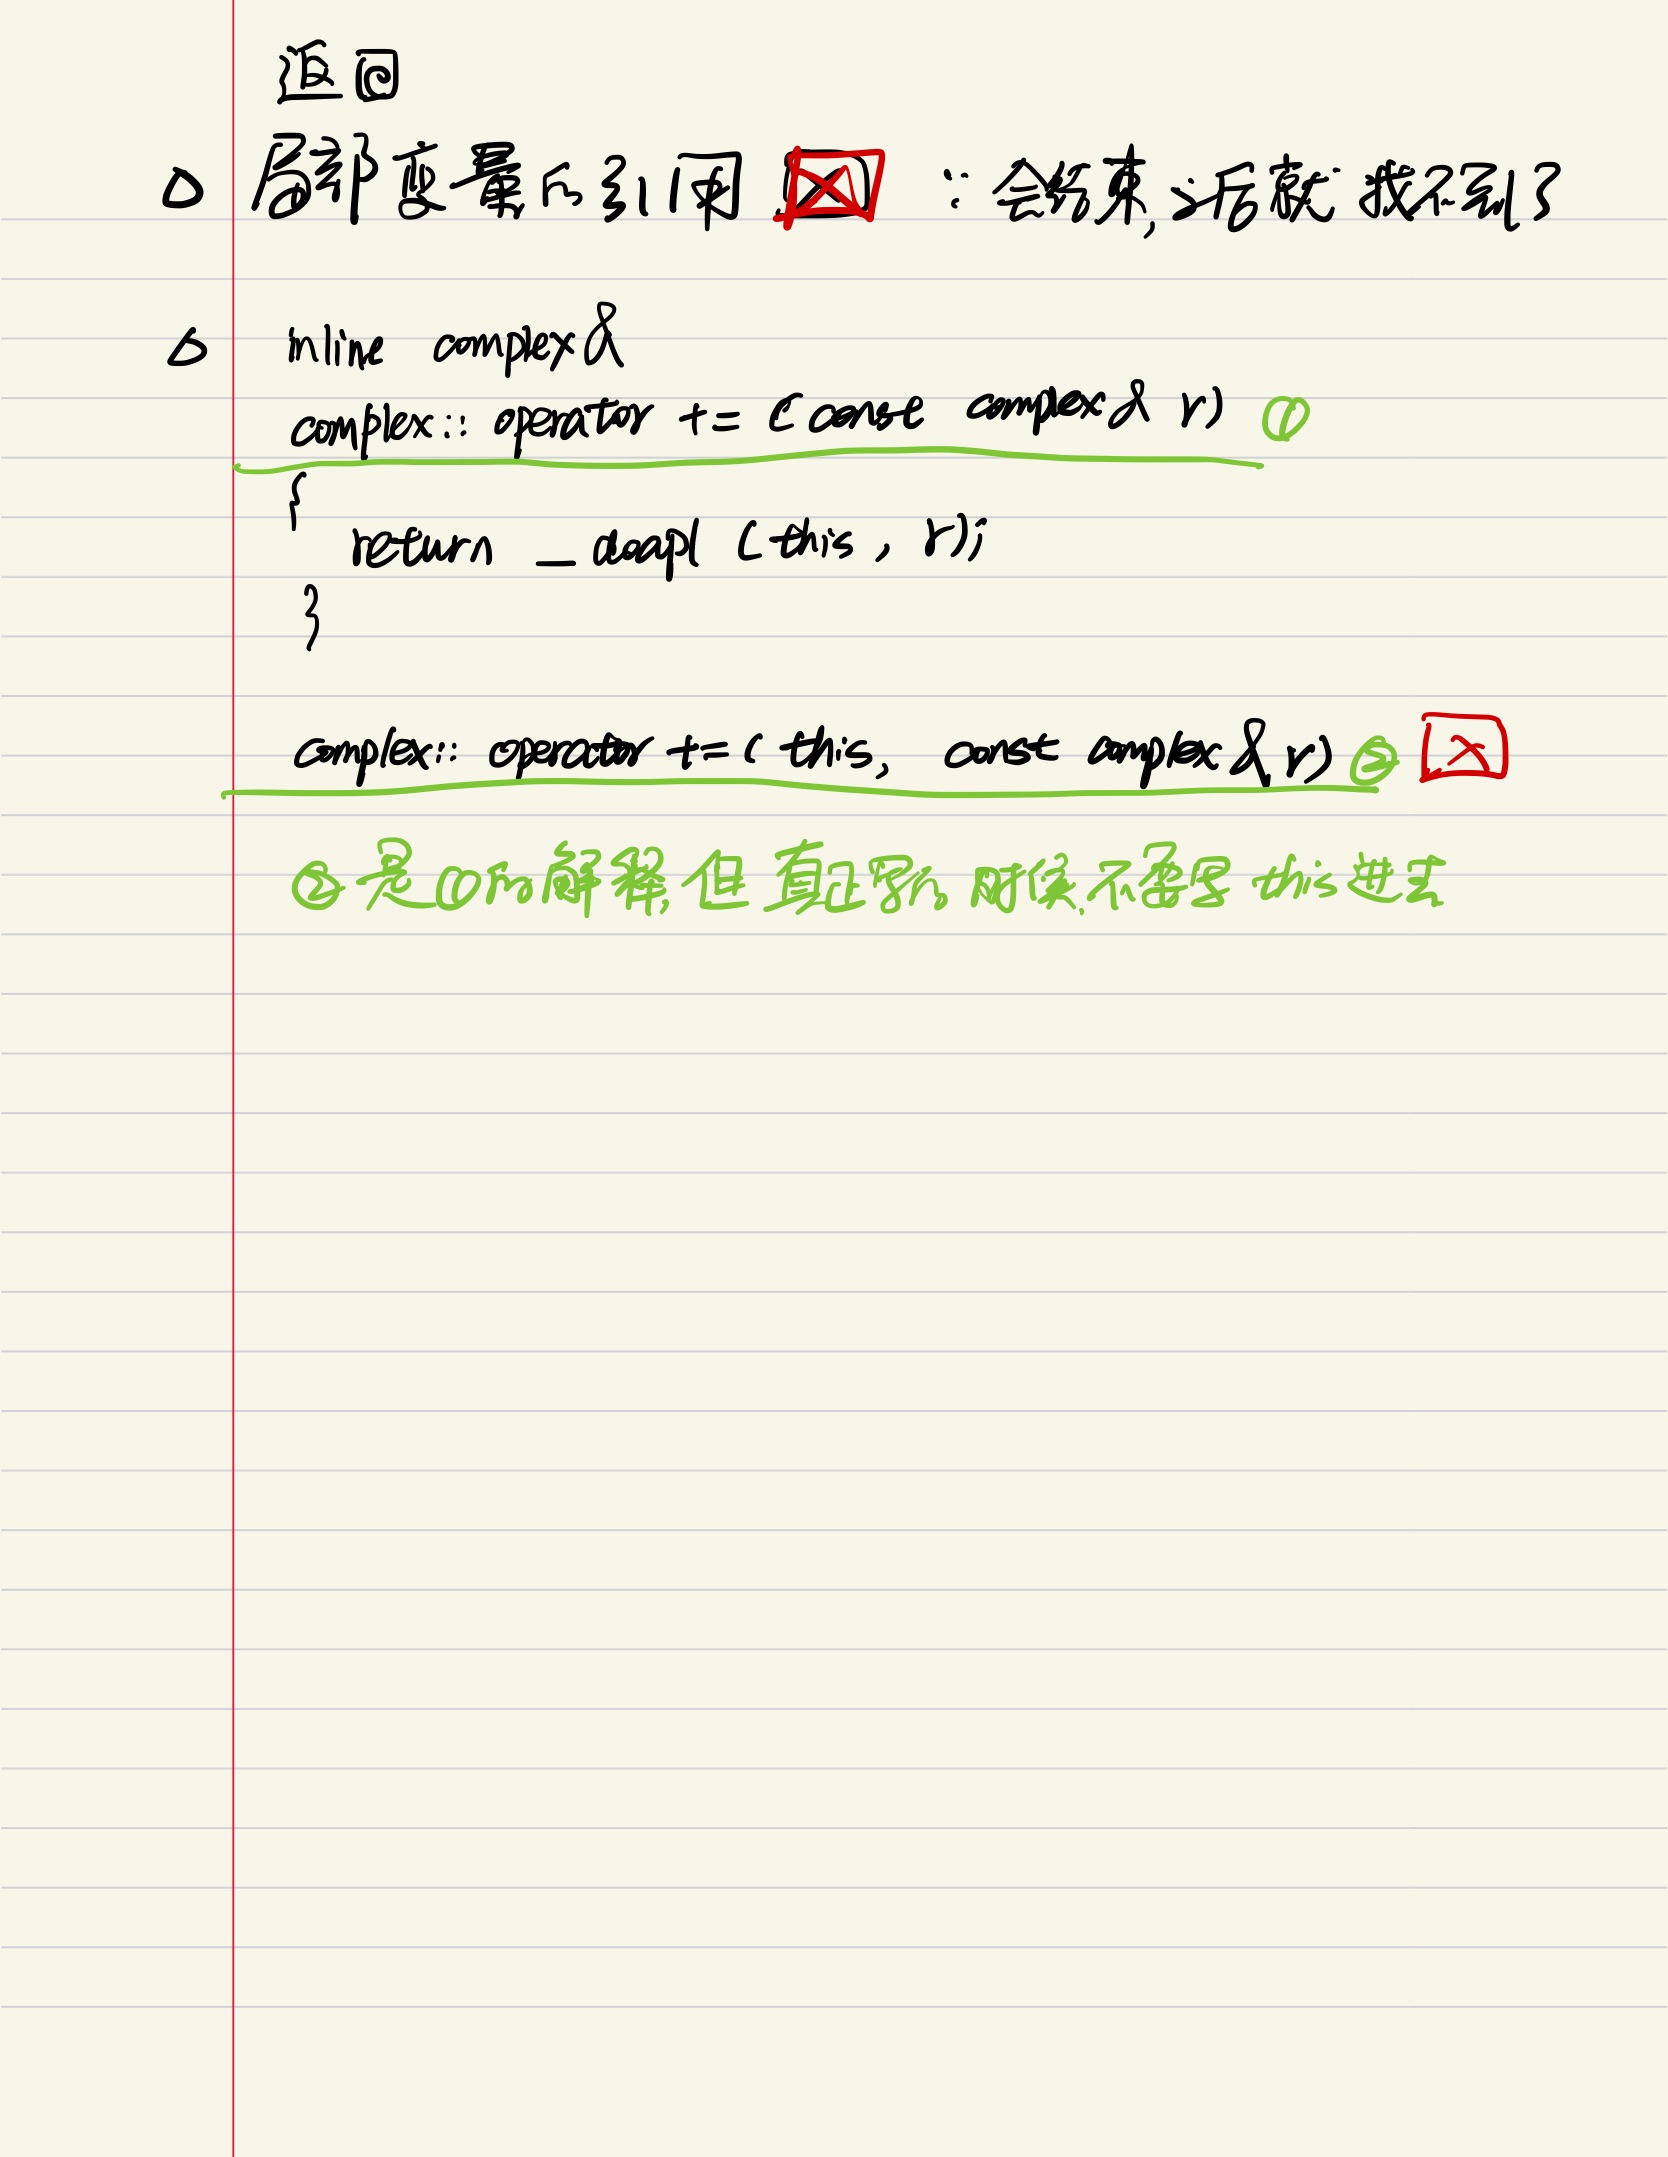 返回
△ 局部变量的引用 ☒ ∵会结束,之后就找不到了
△ inline complex&
complex:: operator += (const complex& r) ①
{
return _doapl (this, r);
}
complex:: operator += (this, const complex& r) ② ☒
②是①的解释,但真正写的时候,不要写this进去